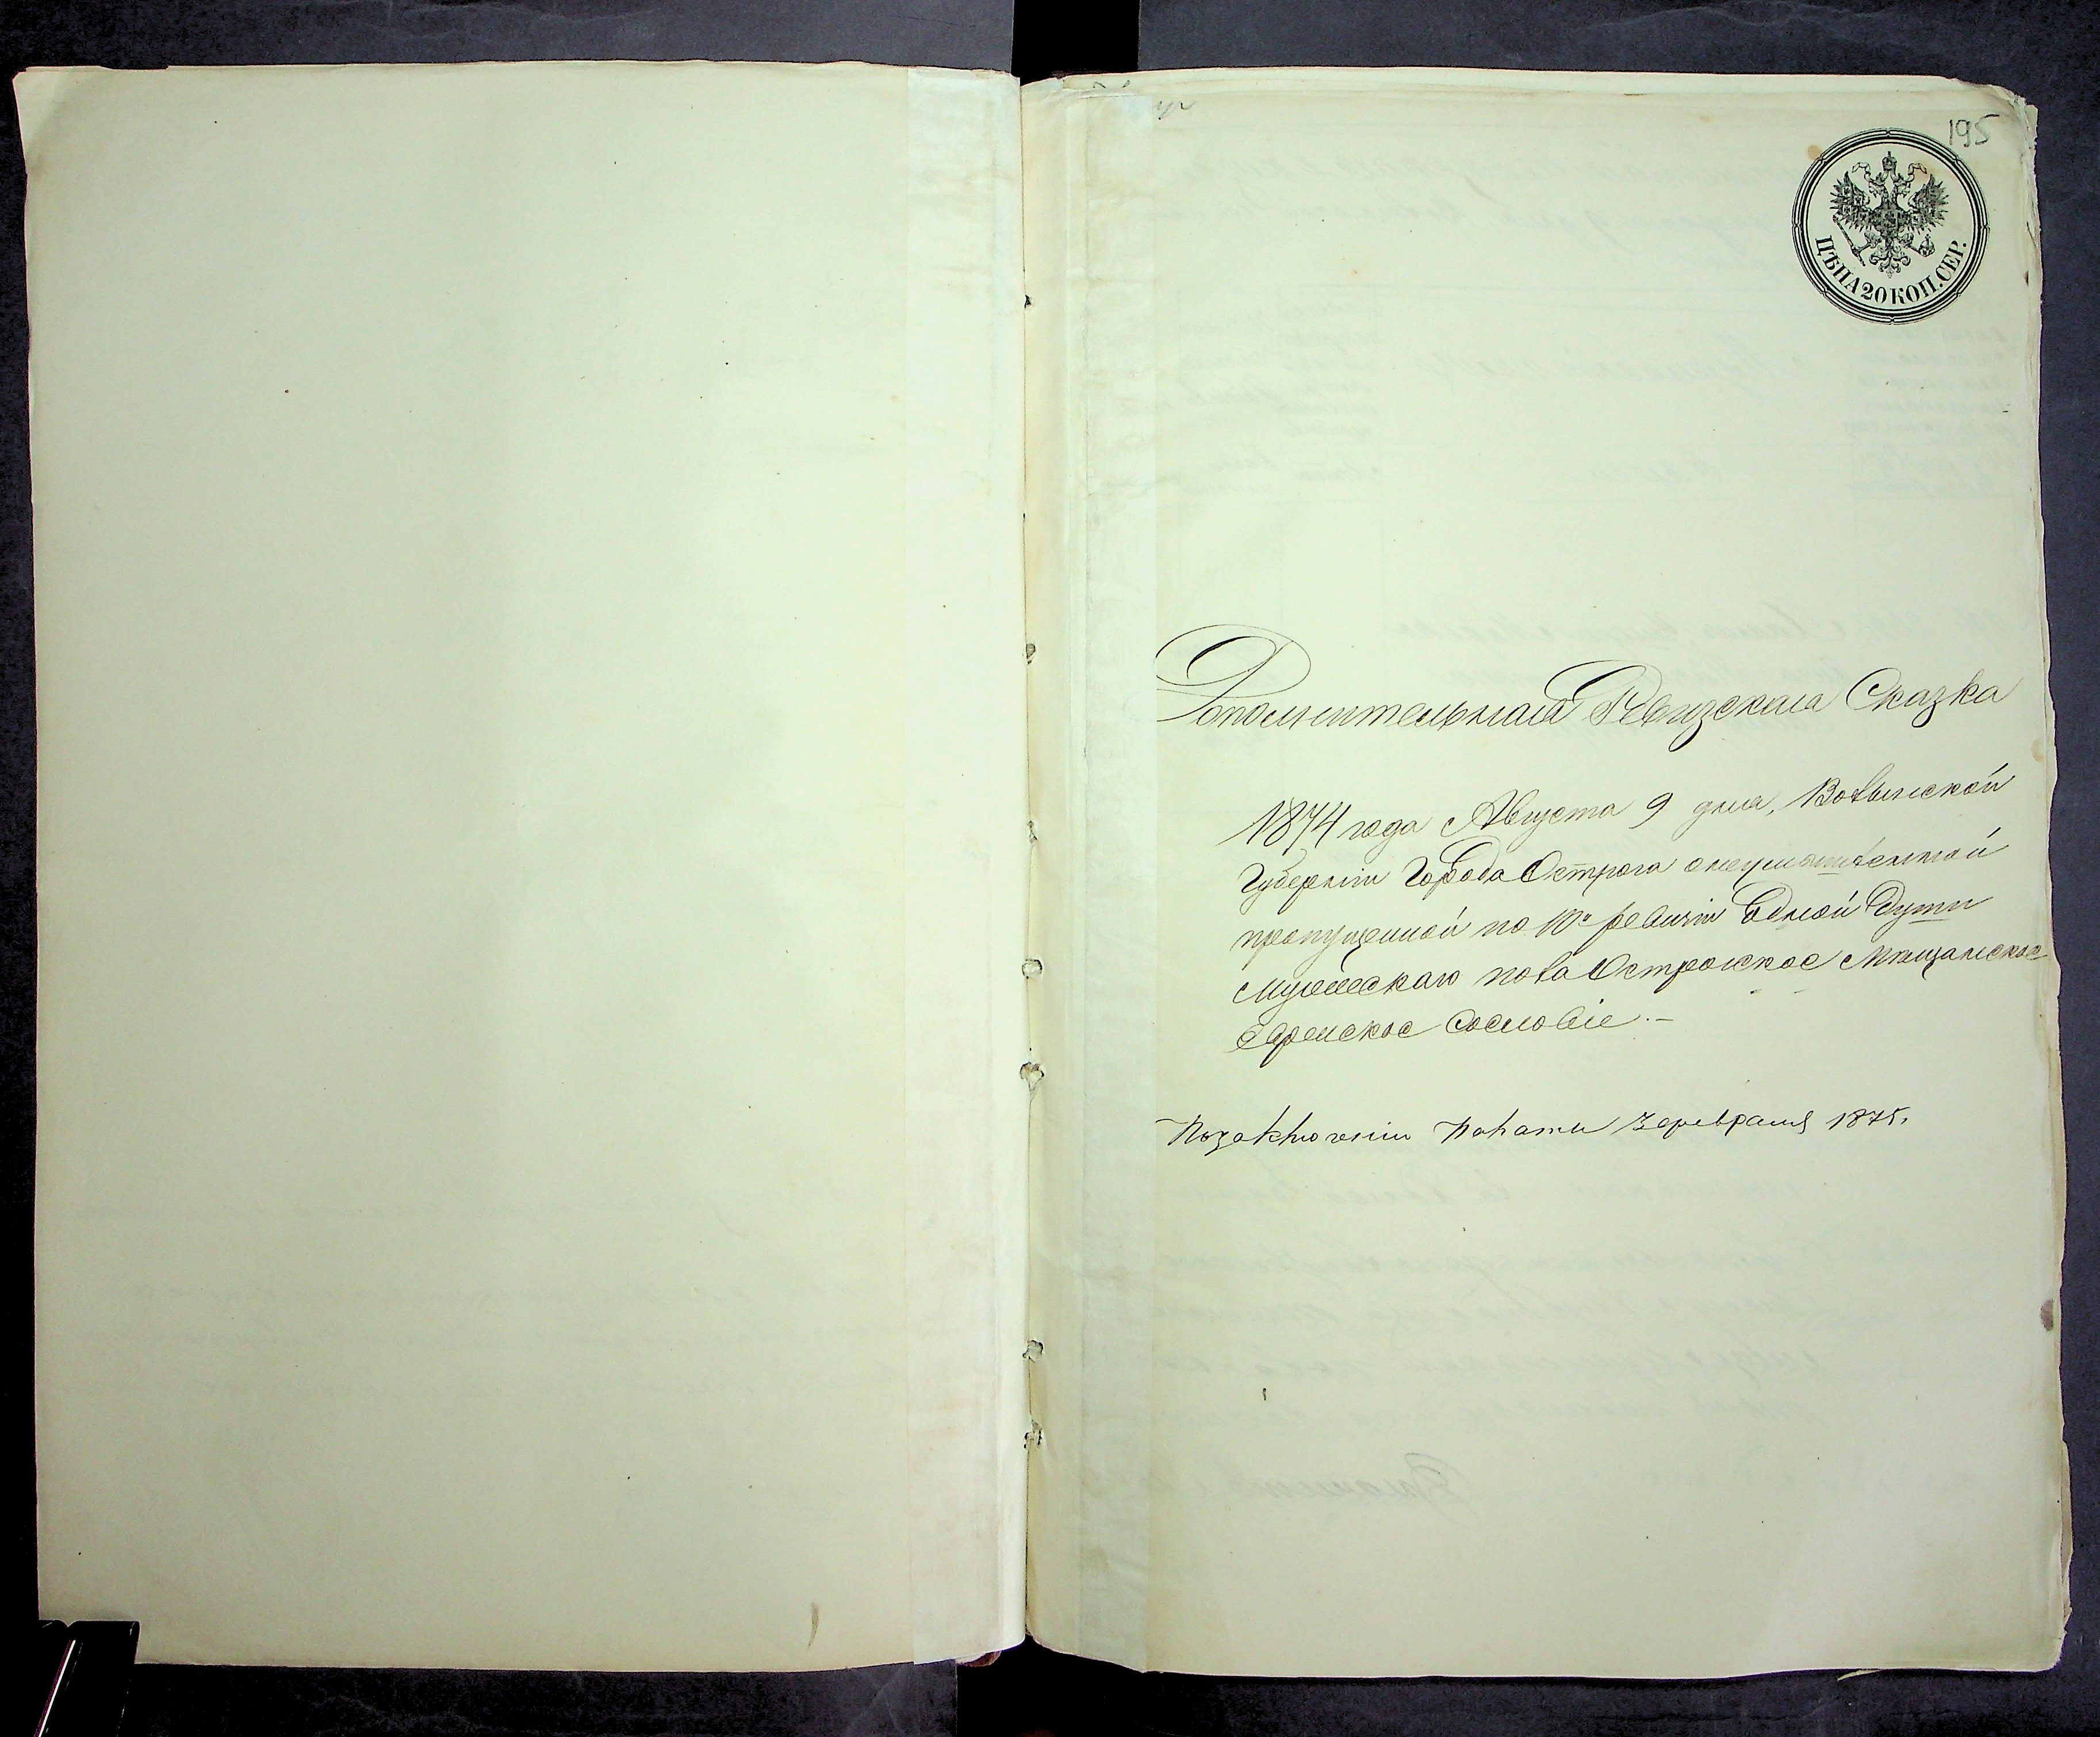 195
ЦѢНА 20 КОП. СЕР.
Дополнительная Ревизская Сказка
1874 года Августа 9 дня, Волынской
Губерніи Города Острога о
пропущенной по 10й ревизіи Едной Души
Мужескаго пола Острожское Мѣщанское
Еврейское Сословіе.-
По заключенію Палаты 3 Февраля 1875.